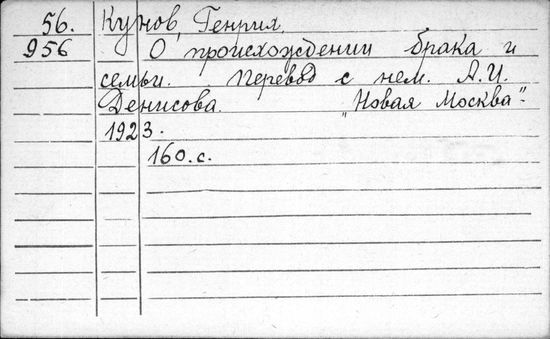 56. Кунов, Генрих.
956 О происхождении брака и
семьи. Перевод с нем. А.И.
Денисова. "Новая Москва".
1923.
160.с.